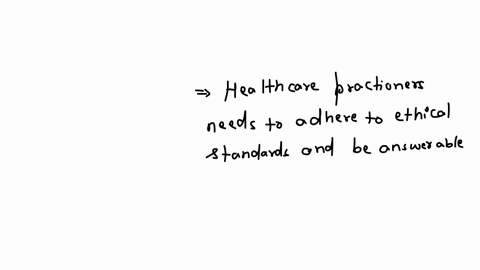 ⇒ Healthcare practioners
needs to adhere to ethical
standards and be answerable